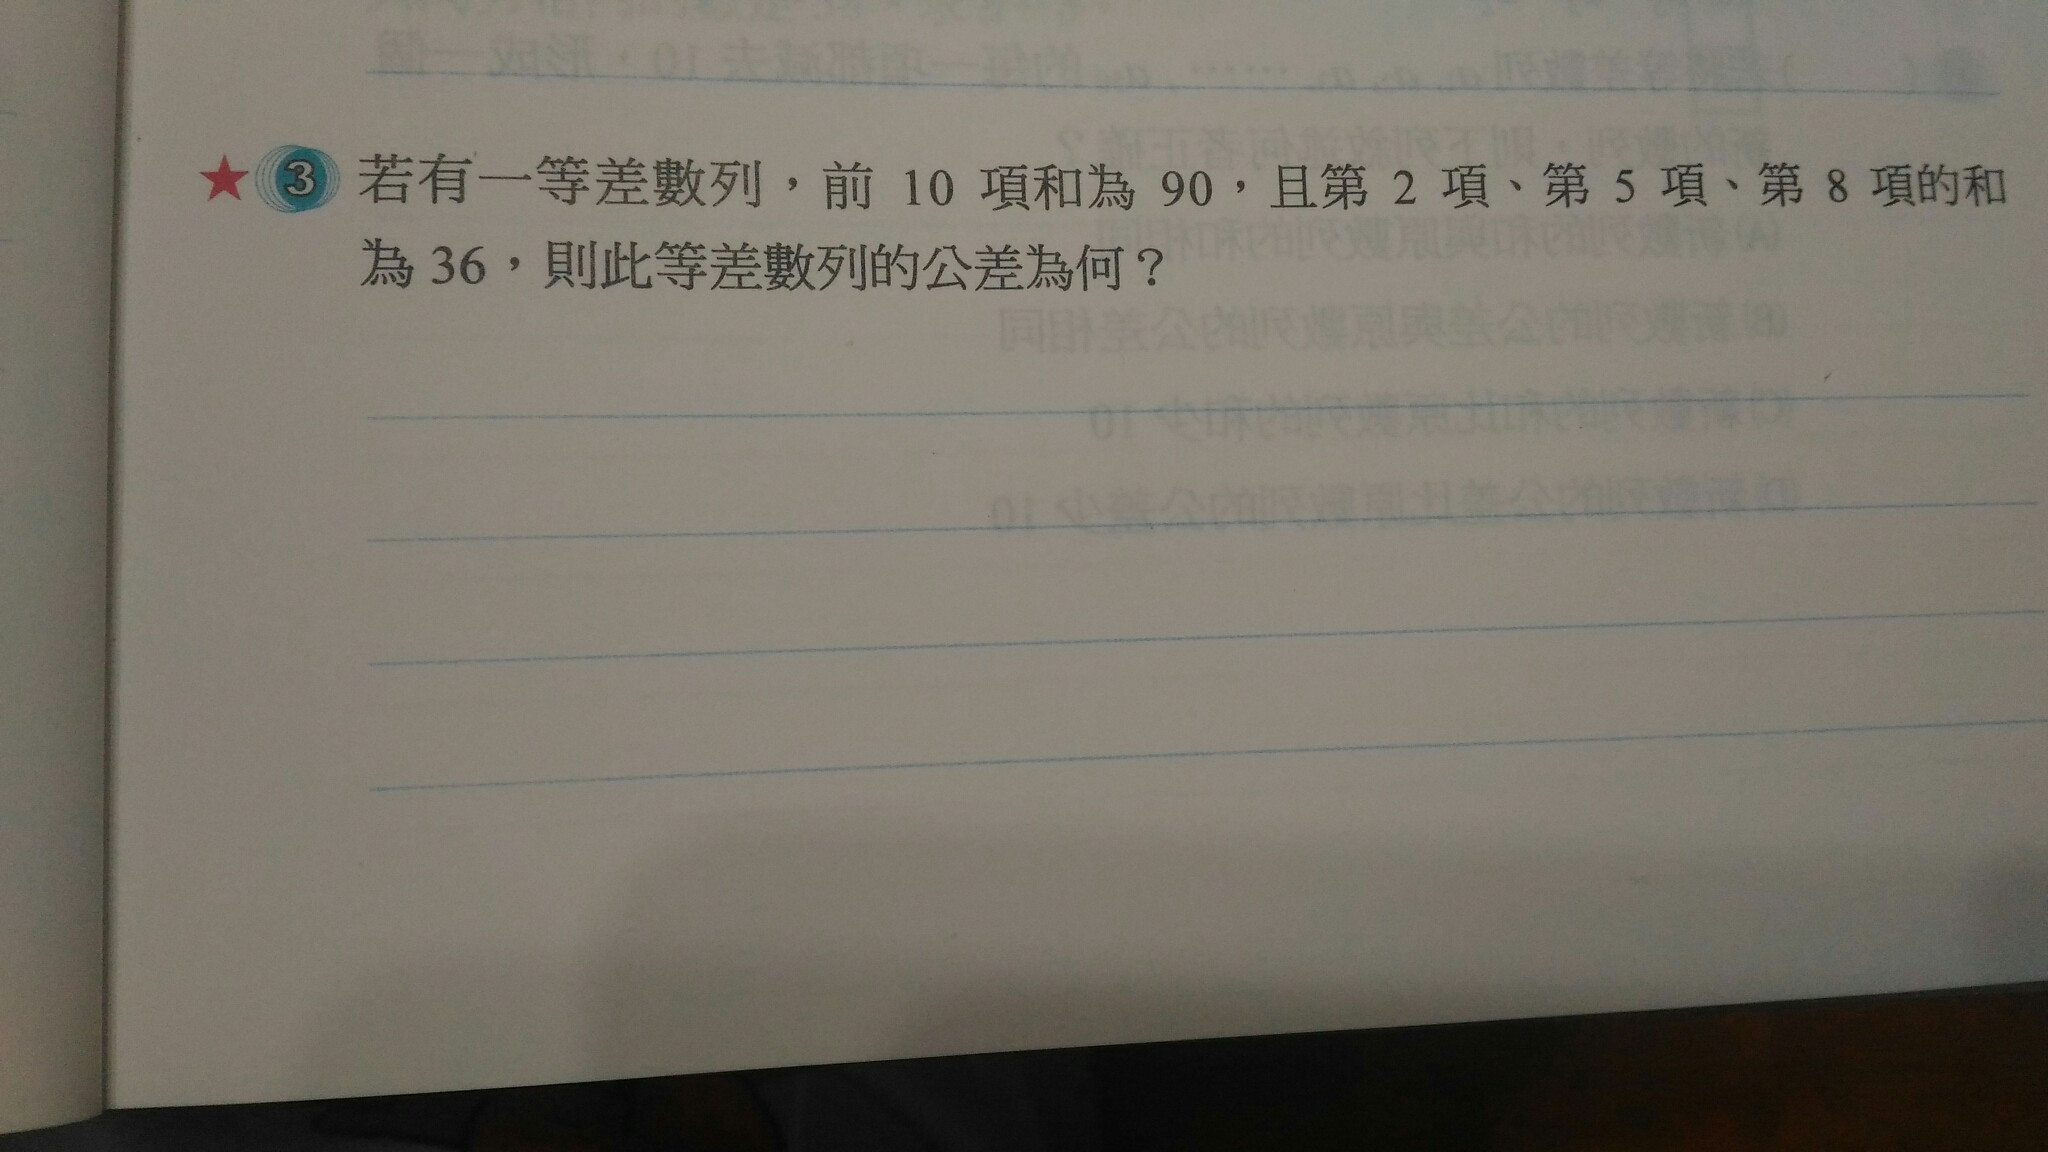 ★ 3 若有一等差數列，前 10 項和為 90，且第 2 項、第 5 項、第 8 項的和
為 36，則此等差數列的公差為何？